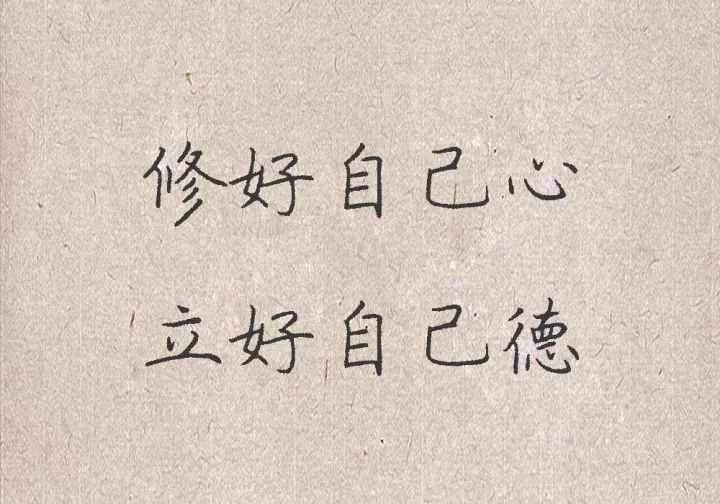 修好自己心
立好自己德